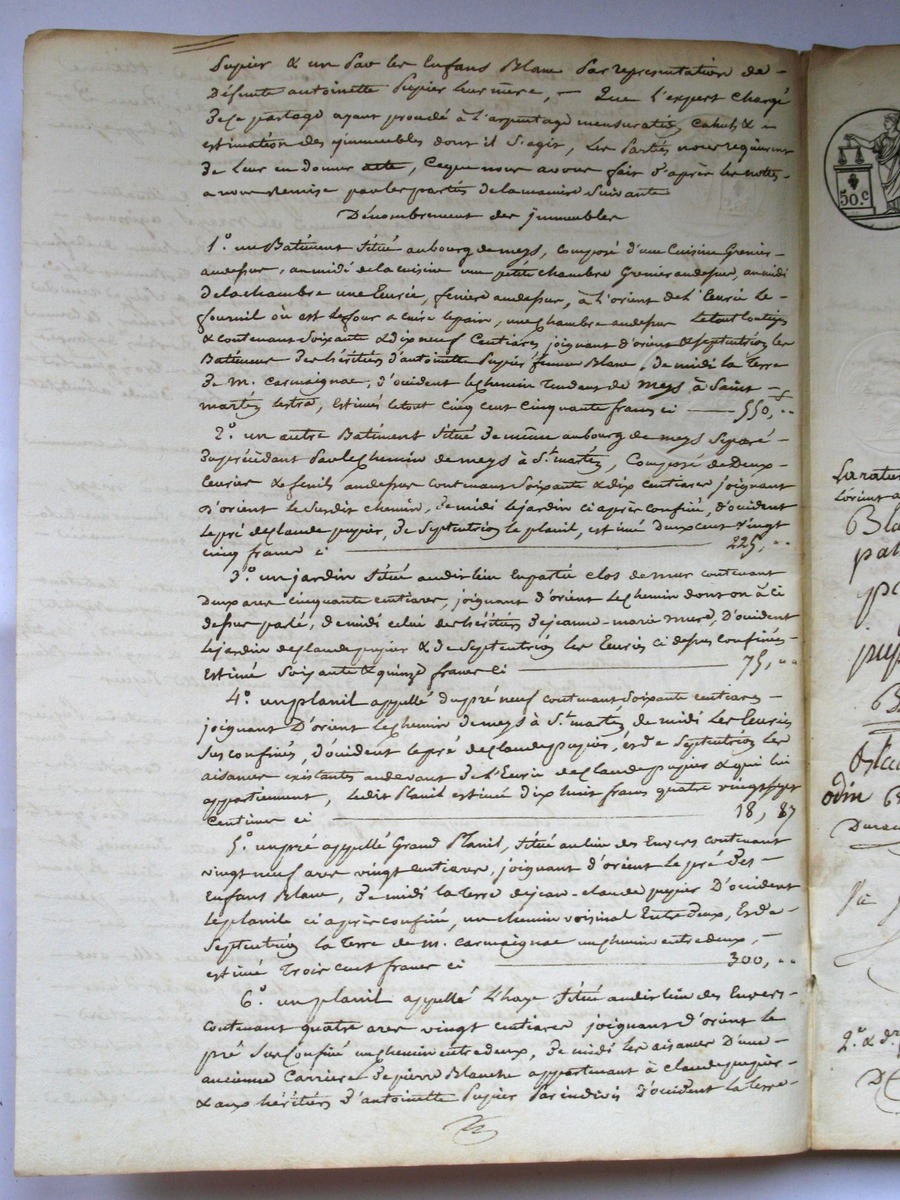 Pupier & un par les Enfans Blanc par representation de
Défunte antoinette Pupier leur mere, - Que l'expert chargé
De ce partage ayant procedé à l'arpentage mensuration calculs &
estimation des immeubles dont il s'agit, Les Parties nous requirent
De leur en donner acte, Ce que nous avons fait d'après les notes
a nous remise par les parties de la maniere suivante
Dénombrement des immeubles
1.º un Batiment situé au bourg de meys, composé d'une Cuisine Grenier
au dessur, au midi de la cuisine une petite chambre Grenier au dessur, au midi
De la chambre une Ecurie, feniere au dessur, à l'orient de l'Ecurie le
fournil où est le four a cuire le pain, une chambre au dessur Le tout contigu
& contenant soixante & dix neuf Centiares, joignant d'orient & septentrion les
Batiments des héritiers d'antoinette Pupier femme Blanc, de midi la terre
De m. carmaignac, d'occident le chemin tendant de Meys à Saint
martin lestra, Estimés le tout cinq cent cinquante francs ci 550, ..
2.º un autre Batiment situé de même au bourg de meys Separé
du précédant par le chemin de meys à St. martin, Composé de Deux
Ecuries & fenils au dessur contenant Soixante & dix centiares joignant
d'orient le susdit chemin, de midi le jardin ci après confiné, d'occident
le pré de claude pupier, de Septentrion le planil, estimé deux cent vingt
cinq francs ci 225, ..
3.º un jardin situé au dit lieu en partie clos de murs contenant
deux ares cinquante centiares, joignant d'orient le chemin dont on à ci
dessur parlé, de midi celui des héritiers de jeanne-marie mure, D'occident
le jardin de claude pupier & de Septentrion les Ecuries ci dessus confinées
Estimé Soixante & quinze francs ci 75, ..
4.º un planil appellé du pré neuf contenant Soixante centiares
joignant D'orient le chemin de meys à St. martin, de midi Les Ecuries
sus confinées, d'occident le pré de claude pupier, et de Septentrion les
aisances existantes au devant de l'Ecurie de claude pupier & qui lui
appartiennent, Le dit Planil estimé dix huit francs quatre vingt sept
Centimes ci 18, 87
5.º un pré appellé Grand Planil, situé au lieu des Envers contenant
vingt neuf ares vingt centiares, joignant d'orient le pré des
Enfans Blanc, de midi la terre de jean-claude pupier D'occident
le planil ci après confiné, un chemin voisinal Entre deux, Et de
Septentrion la terre de m. carmaignac un chemin entre deux,
estimé Trois cent francs ci 300, ..
6.º un planil appellé L'haye situé au dit lieu des Envers
contenant quatre ares vingt centiares joignant d'orient le
pré Sur Confiné un chemin entre deux, de midi les aisances D'une
ancienne Carriere de pierre Blanche appartenant à claude pupier
& aux héritiers d'antoinette Pupier par indivis D'occident la terre
50.C
La ratu
L'orient a
Bla
pat
pe
pup
B
odin
2.º & d